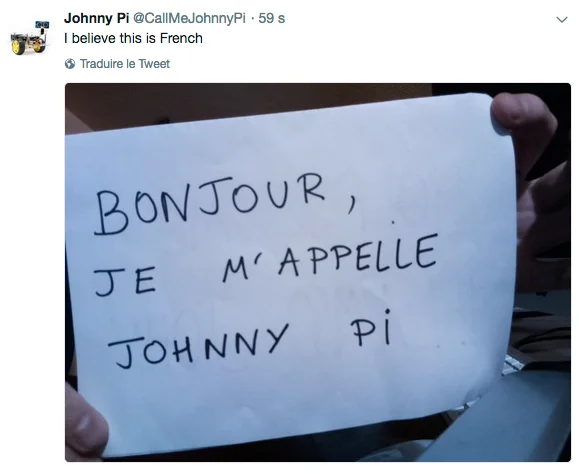 Johnny Pi @CallMeJohnnyPi · 59 s
I believe this is French
Traduire le Tweet
BONJOUR,
JE M'APPELLE
JOHNNY Pi